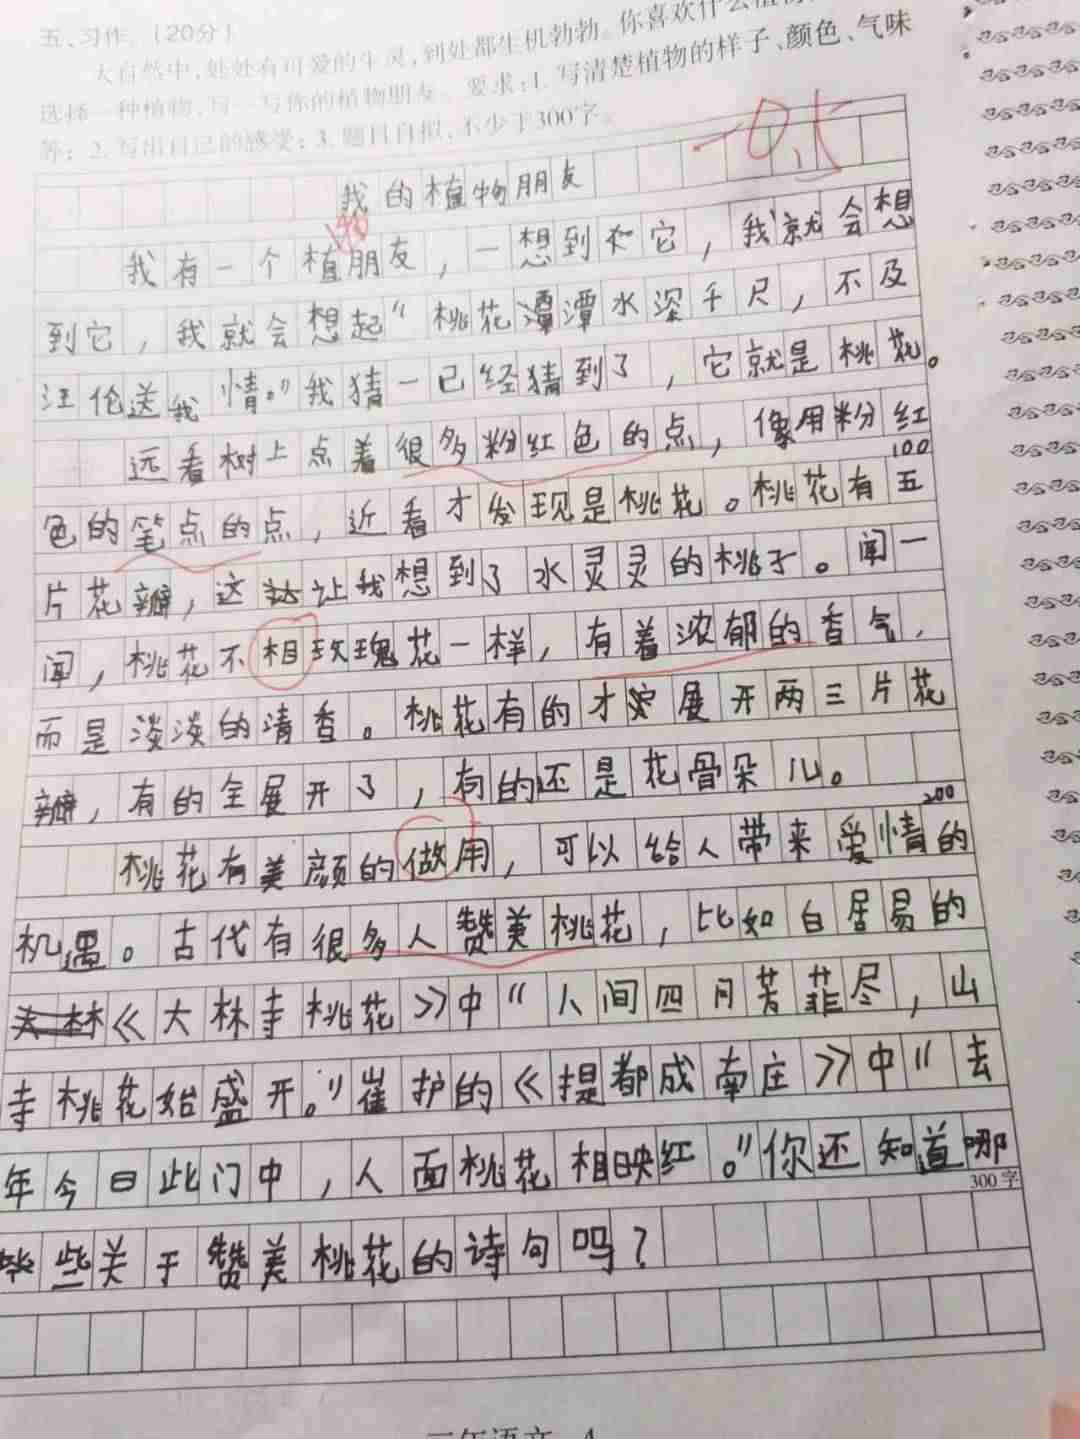 五、习作。(20分)
大自然中,处处有可爱的生灵,到处都生机勃勃。你喜欢什么植物
选择一种植物,写一写你的植物朋友。要求:1.写清楚植物的样子、颜色、气味
等;2.写出自己的感受;3.题目自拟,不少于300字。
我的植物朋友
我有一个植物朋友,一想到它,我就会想
到它,我就会想起“桃花潭潭水深千尺,不及
汪伦送我情。”我猜一已经猜到了,它就是桃花。
远看树上点着很多粉红色的点,像用粉红
100
色的笔点的点,近看才发现是桃花。桃花有五
片花瓣,这让我想到了水灵灵的桃子。闻一
闻,桃花不相玫瑰花一样,有着浓郁的香气,
而是淡淡的清香。桃花有的才展开两三片花
瓣,有的全展开了,有的还是花骨朵儿。
200
桃花有美颜的做用,可以给人带来爱情的
机遇。古代有很多人赞美桃花,比如白居易的
《大林寺桃花》中“人间四月芳菲尽,山
寺桃花始盛开。”崔护的《提都成南庄》中“去
年今日此门中,人面桃花相映红。”你还知道哪
300字
些关于赞美桃花的诗句吗?